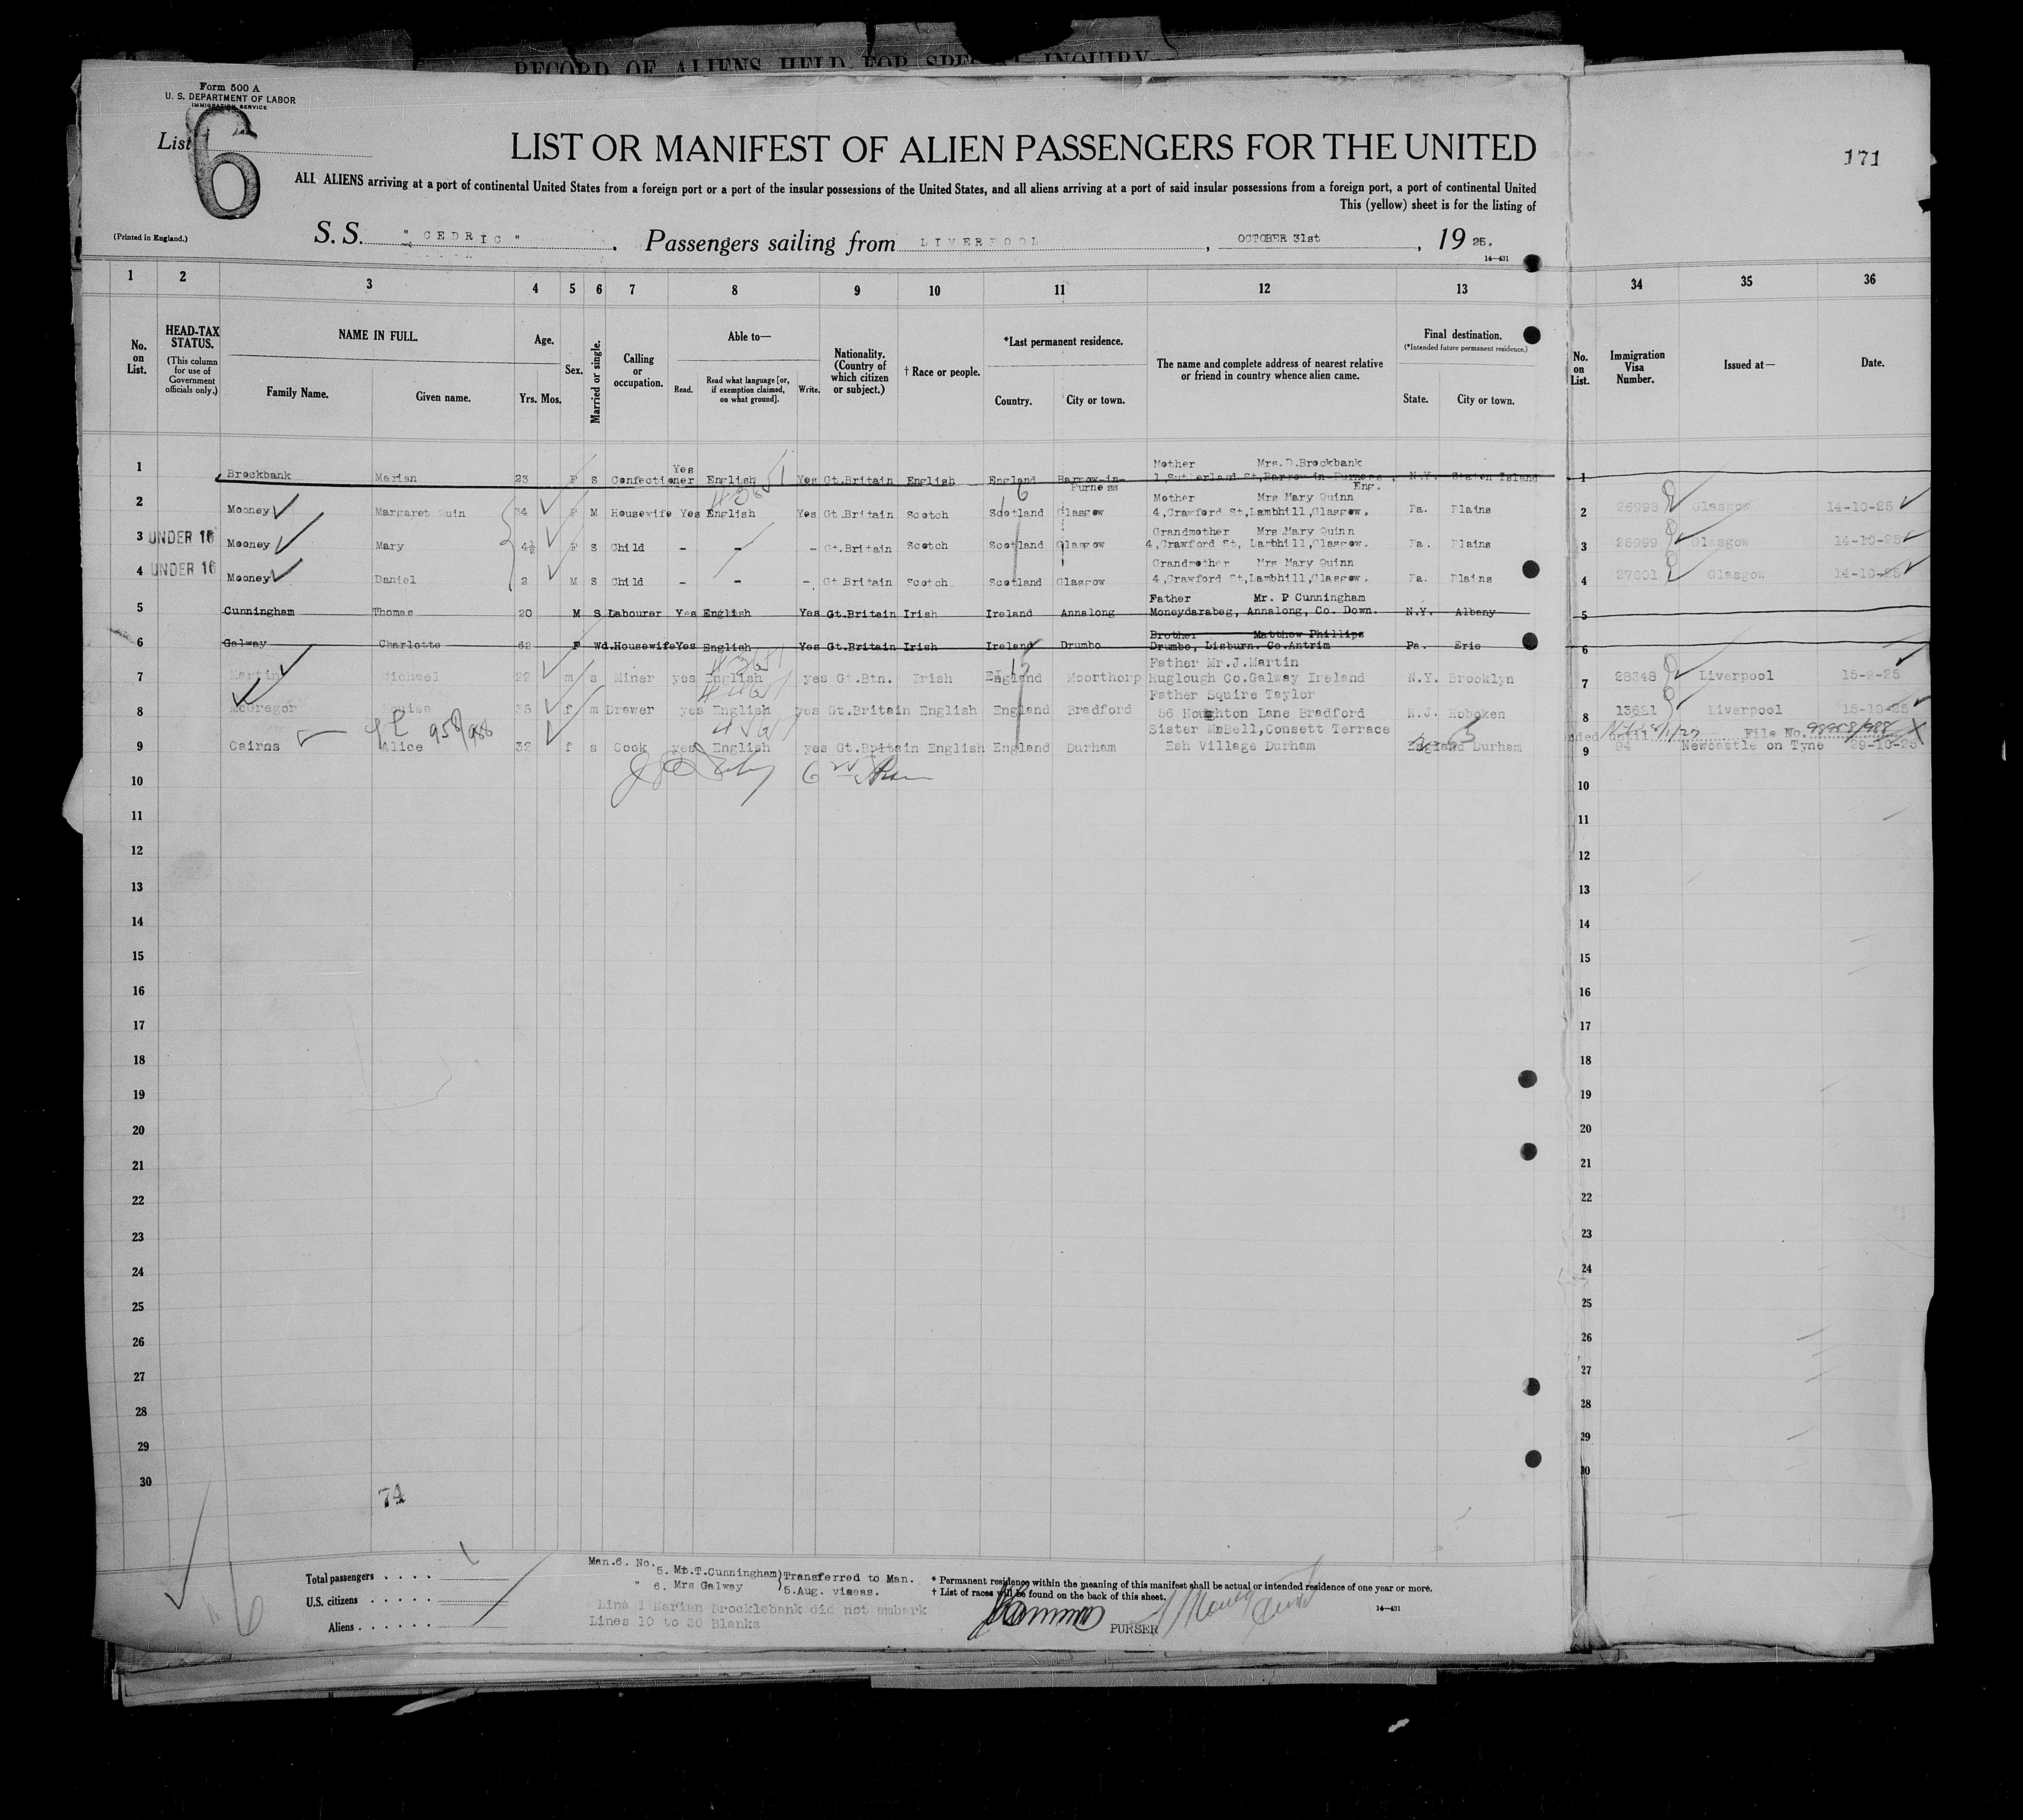 RECORD OF ALIENS HELD FOR SPECIAL INQUIRY
Form 500 A
U. S. DEPARTMENT OF LABOR
IMMIGRATION SERVICE
List 6
LIST OR MANIFEST OF ALIEN PASSENGERS FOR THE UNITED
171
ALL ALIENS arriving at a port of continental United States from a foreign port or a port of the insular possessions of the United States, and all aliens arriving at a port of said insular possessions from a foreign port, a port of continental United
This (yellow) sheet is for the listing of
(Printed in England.)
S. S. "CEDRIC". Passengers sailing from LIVERPOOL, OCTOBER 31st, 1925.
14—431
1 2 3 4 5 6 7 8 9 10 11 12 13 34 35 36
No. on List.
HEAD-TAX STATUS. (This column for use of Government officials only.)
NAME IN FULL. Family Name. Given name.
Age. Yrs. Mos.
Sex.
Married or single.
Calling or occupation.
Able to— Read. Read what language [or, if exemption claimed, on what ground]. Write.
Nationality. (Country of which citizen or subject.)
† Race or people.
*Last permanent residence. Country. City or town.
The name and complete address of nearest relative or friend in country whence alien came.
Final destination. (*Intended future permanent residence.) State. City or town.
No. on List.
Immigration Visa Number.
Issued at—
Date.
Mother Mrs. D. Brockbank
1 Brockbank Marian 23 F S Confectioner Yes English Yes Gt.Britain English England Barrow-in-Furness 1 Sutherland St, Barrow-in-Furness, Eng. N.Y. Staten Island 1
Mother Mrs Mary Quinn
2 Mooney Margaret Quin 34 F M Housewife Yes English Yes Gt.Britain Scotch Scotland Glasgow 4,Crawford St,Lambhill,Glasgow. Pa. Plains 2 26998 Glasgow 14-10-25
Grandmother Mrs Mary Quinn
3 UNDER 16 Mooney Mary 4½ F S Child - - - Gt.Britain Scotch Scotland Glasgow 4,Crawford St, Lambhill,Glasgow. Pa. Plains 3 26999 Glasgow 14-10-25
Grandmother Mrs Mary Quinn
4 UNDER 16 Mooney Daniel 2 M S Child - - - Gt Britain Scotch Scotland Glasgow 4,Crawford St,Lambhill,Glasgow. Pa. Plains 4 27001 Glasgow 14-10-25
Father Mr. P Cunningham
5 Cunningham Thomas 20 M S Labourer Yes English Yes Gt.Britain Irish Ireland Annalong Moneydarabeg, Annalong, Co. Down. N.Y. Albany 5
Brother Matthew Phillips
6 Galway Charlotte 62 F Wd. Housewife Yes English Yes Gt.Britain Irish Ireland Drumbo Drumbo, Lisburn. Co.Antrim Pa. Erie 6
Father Mr.J.Martin
7 Martin Michael 22 m s Miner yes English yes Gt.Btn. Irish England Moorthorp Huglough Co.Galway Ireland N.Y. Brooklyn 7 28348 Liverpool 15-9-25
Father Squire Taylor
8 McGregor Louisa 35 f m Drawer yes English yes Gt.Britain English England Bradford 56 Houghton Lane Bradford N.J. Hoboken 8 13621 Liverpool 15-10-25
958/988
Sister MrBell,Consett Terrace
until 4/1/27 File No. 98958/988
9 Cairns Alice 32 f s Cook yes English yes Gt.Britain English England Durham Esh Village Durham England Durham 9 94 Newcastle on Tyne 29-10-25
10 10
11 11
12 12
13 13
14 14
15 15
16 16
17 17
18 18
19 19
20 20
21 21
22 22
23 23
24 24
25 25
26 26
27 27
28 28
29 29
30 30
74
Total passengers
U.S. citizens
Aliens
Man.6. No. 5. Mr.T.Cunningham) Transferred to Man.
" 6. Mrs Galway ) 5.Aug. visas.
Line 1 Marian Brocklebank did not embark
Lines 10 to 30 Blanks
* Permanent residence within the meaning of this manifest shall be actual or intended residence of one year or more.
† List of races will be found on the back of this sheet.
14—431
PURSER